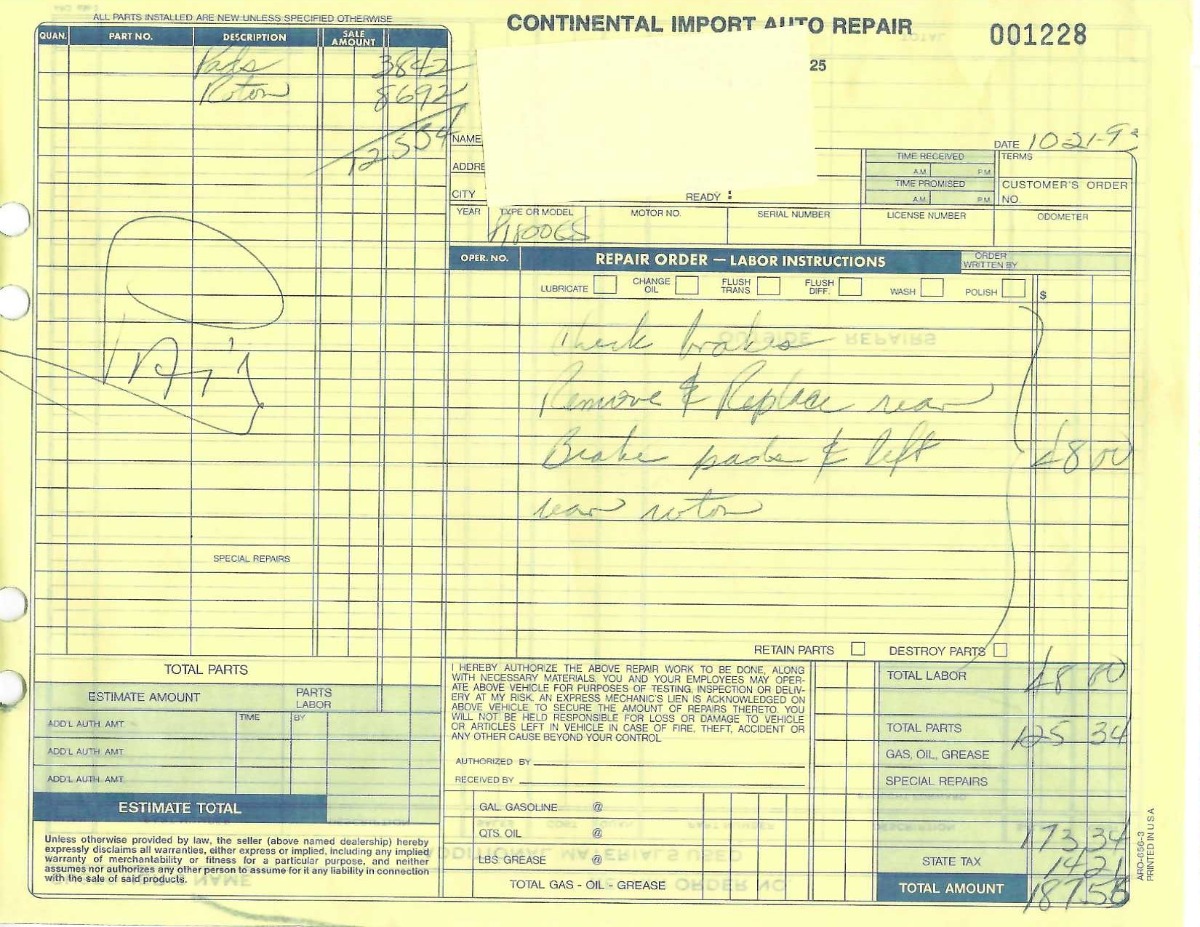 ALL PARTS INSTALLED ARE NEW UNLESS SPECIFIED OTHERWISE
CONTINENTAL IMPORT AUTO REPAIR
001228
25
QUAN. PART NO. DESCRIPTION SALE AMOUNT
Pads 3842
Rotor 8692
12534
NAME
DATE 10-21-93
ADDRE
CITY
READY :
TIME RECEIVED
A.M. P.M.
TIME PROMISED
A.M. P.M.
TERMS
CUSTOMER'S ORDER NO.
YEAR TYPE OR MODEL MOTOR NO. SERIAL NUMBER LICENSE NUMBER ODOMETER
OPER. NO. REPAIR ORDER — LABOR INSTRUCTIONS ORDER WRITTEN BY
LUBRICATE CHANGE OIL FLUSH TRANS. FLUSH DIFF. WASH POLISH $
Check brakes
Remove & Replace rear
Brake pads & left 48 00
rear rotor
SPECIAL REPAIRS
RETAIN PARTS DESTROY PARTS
TOTAL PARTS
ESTIMATE AMOUNT PARTS LABOR
ADD'L AUTH. AMT. TIME BY
ADD'L AUTH. AMT.
ADD'L AUTH. AMT.
ESTIMATE TOTAL
Unless otherwise provided by law, the seller (above named dealership) hereby
expressly disclaims all warranties, either express or implied, including any implied
warranty of merchantability or fitness for a particular purpose, and neither
assumes nor authorizes any other person to assume for it any liability in connection
with the sale of said products.
I HEREBY AUTHORIZE THE ABOVE REPAIR WORK TO BE DONE, ALONG
WITH NECESSARY MATERIALS. YOU AND YOUR EMPLOYEES MAY OPER-
ATE ABOVE VEHICLE FOR PURPOSES OF TESTING, INSPECTION OR DELIV-
ERY AT MY RISK. AN EXPRESS MECHANIC'S LIEN IS ACKNOWLEDGED ON
ABOVE VEHICLE TO SECURE THE AMOUNT OF REPAIRS THERETO. YOU
WILL NOT BE HELD RESPONSIBLE FOR LOSS OR DAMAGE TO VEHICLE
OR ARTICLES LEFT IN VEHICLE IN CASE OF FIRE, THEFT, ACCIDENT OR
ANY OTHER CAUSE BEYOND YOUR CONTROL.
AUTHORIZED BY
RECEIVED BY
GAL. GASOLINE @
QTS. OIL @
LBS. GREASE @
TOTAL GAS - OIL - GREASE
TOTAL LABOR 48 00
TOTAL PARTS 125 34
GAS, OIL, GREASE
SPECIAL REPAIRS
173,34
STATE TAX 1421
TOTAL AMOUNT 187.55
ARO-656-3
PRINTED IN U.S.A.